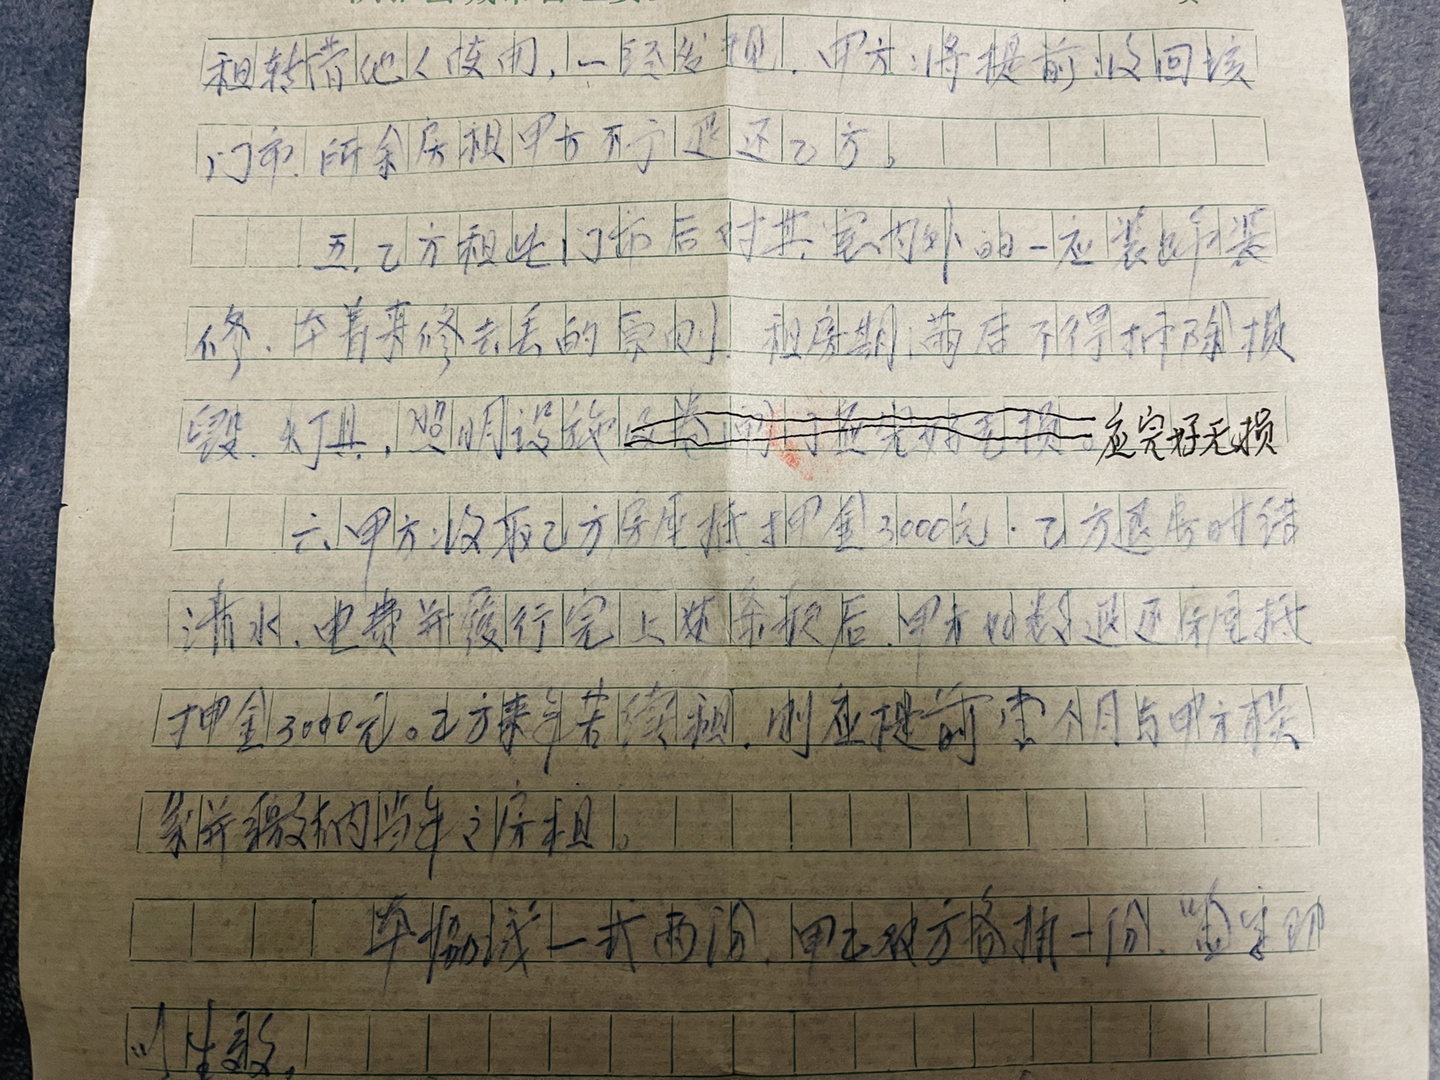 租转营他人使用，一经发现，甲方将提前收回该
门市，所余房租甲方不予退还乙方。
五、乙方租此门市后对其室内外的一应装饰装
修，本着来修去丢的原则，租房期满后不得拆除损
毁。灯具，照明设施及卷闸门应完好无损。应完好无损
六、甲方收取乙方房屋抵押金3000元。乙方退房时结
清水、电费并履行完上述条款后，甲方如数退还房屋抵
押金3000元。乙方来年若续租，则应提前壹个月与甲方联
系并缴纳当年之房租。
本协议一式两份，甲乙双方各执一份，签字即
生效。